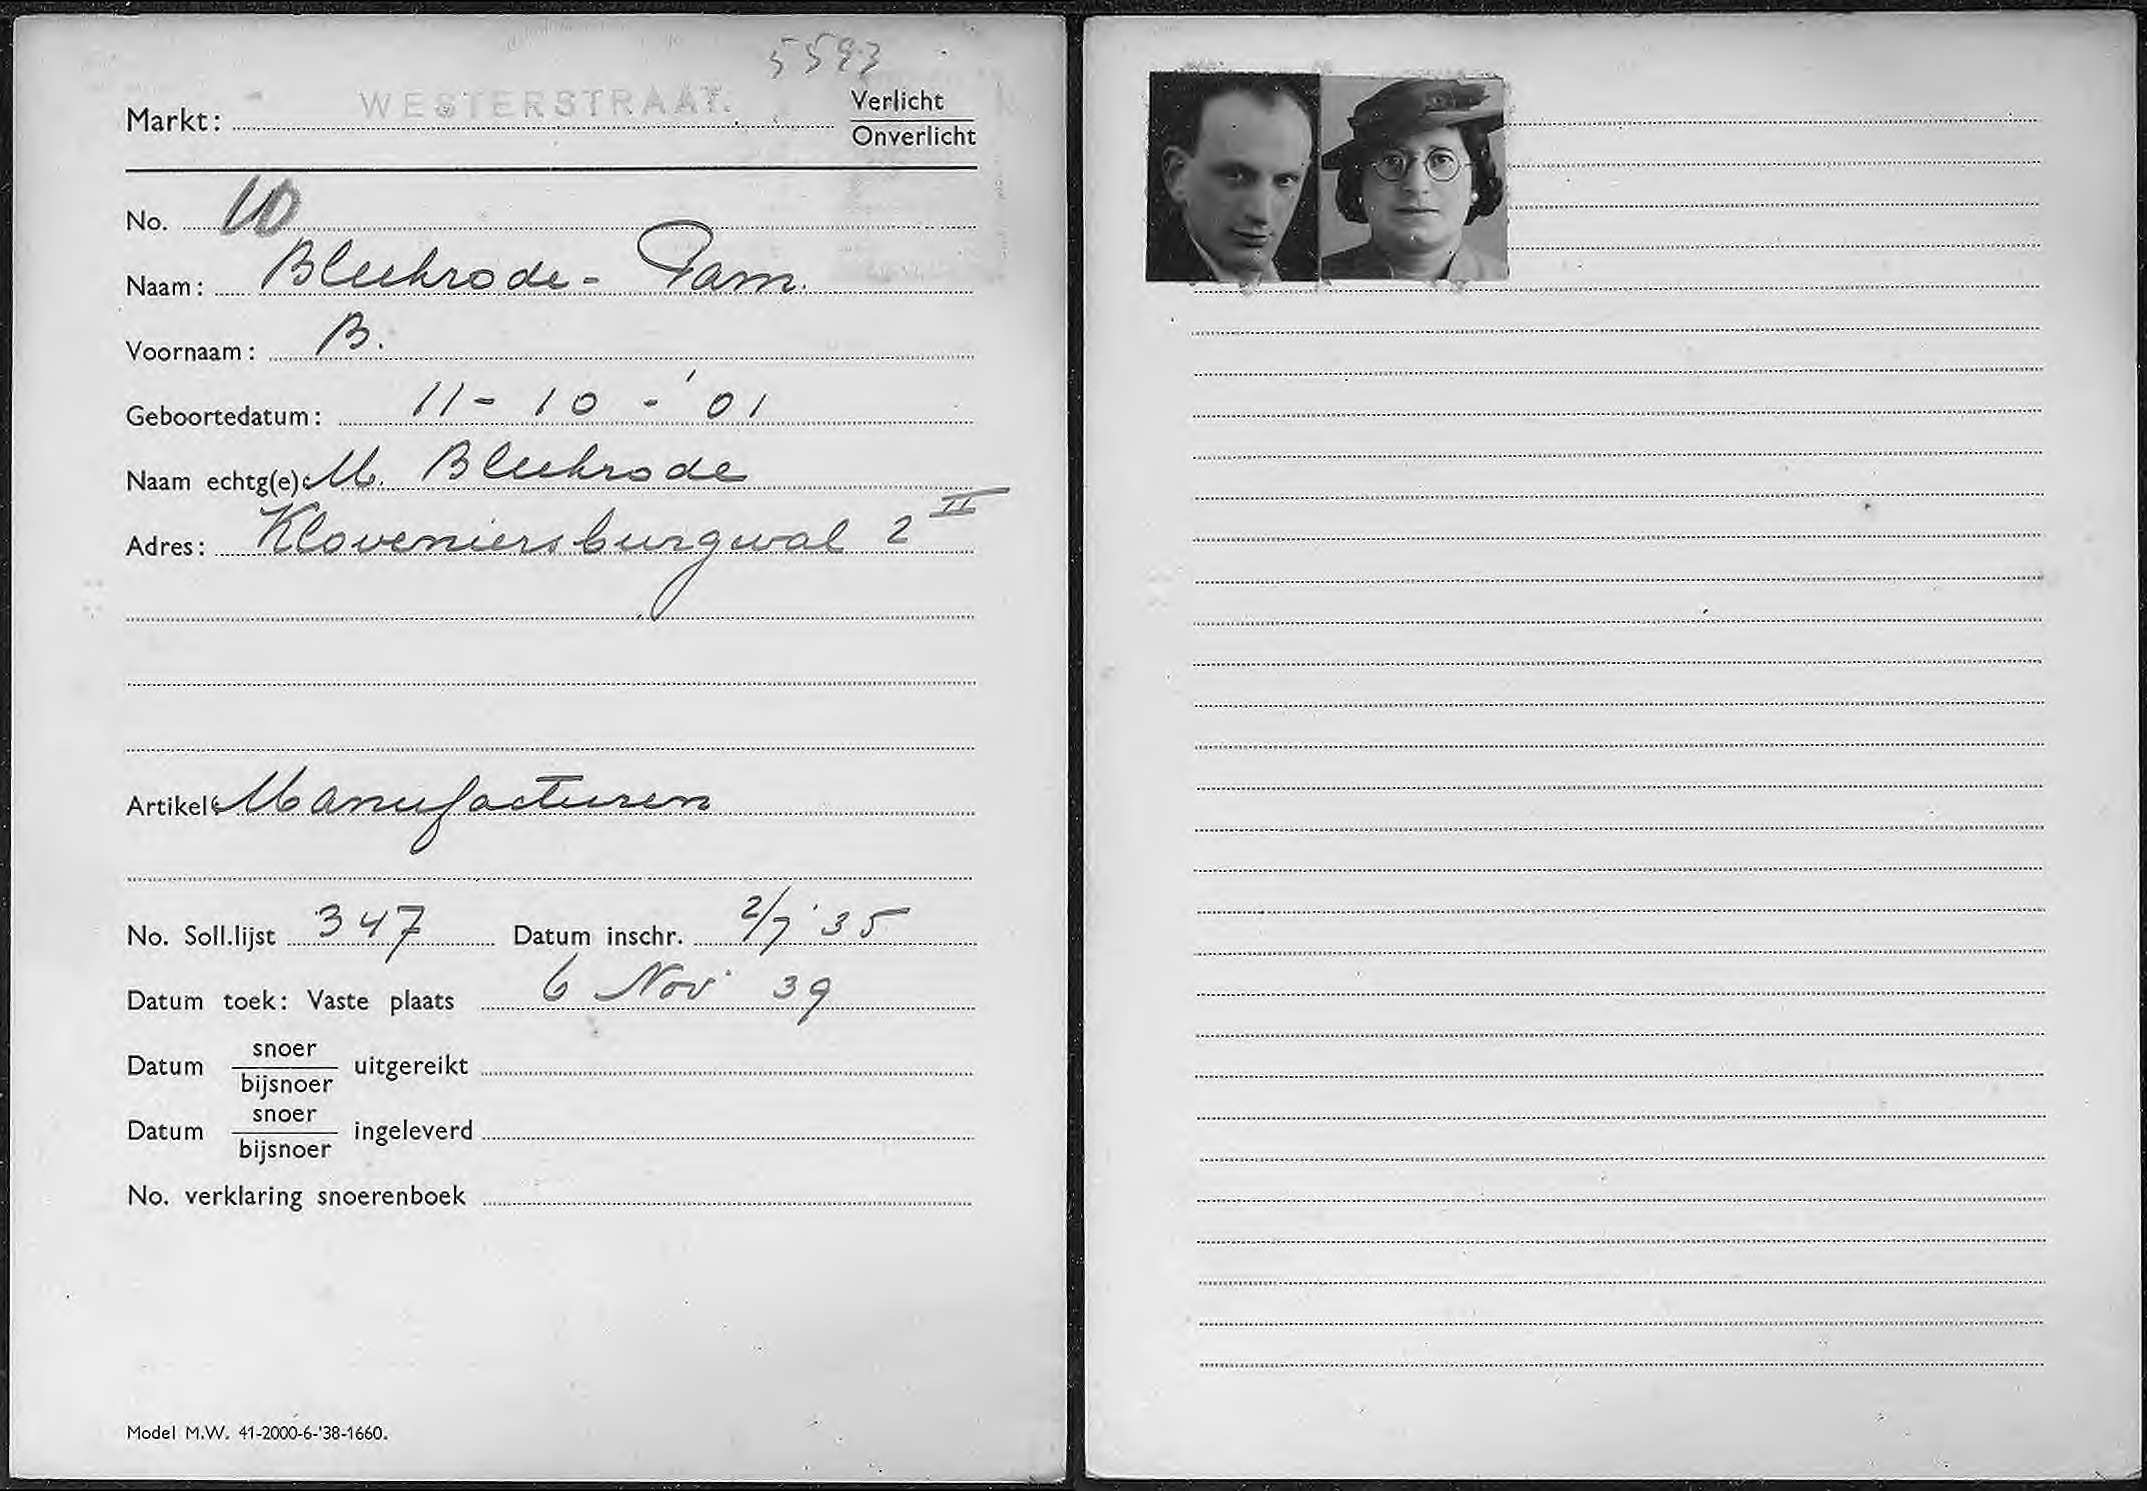 5593
Markt: WESTERSTRAAT. Verlicht
Onverlicht
No. 10
Naam: Bleekrode - Pam.
Voornaam: B.
Geboortedatum: 11 - 10 - '01
Naam echtg(e): M. Bleekrode
Adres: Kloveniersburgwal 2 II
Artikel: Manufacturen
No. Soll.lijst 347 Datum inschr. 2/7 '35
Datum toek: Vaste plaats 6 Nov 39
Datum snoer/bijsnoer uitgereikt
Datum snoer/bijsnoer ingeleverd
No. verklaring snoerenboek
Model M.W. 41-2000-6-'38-1660.